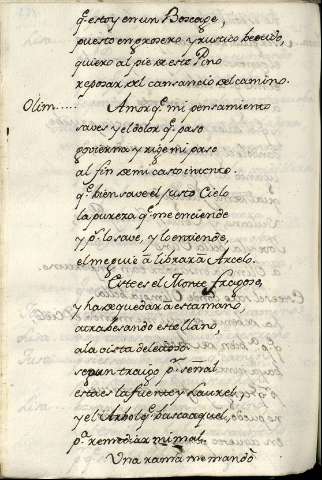 q̃ estoy en un Boscage,
puesto en grosero y rustico bestido,
quiero al pie de este Pino
reposar del cansancio del camino.
Olim..... Amor q̃ mi pensamiento
saves y el dolor q̃ paso
govierna y rige mi paso
al fin de mi casto intento.
q̃ bien save el justo Cielo
la pureza q̃ me enciende
y pͬ lo save, y lo entiende,
el me guie â librar â Arcelo.
Este es el Monte fragoso,
y ha de quedar â esta mano,
atrabesando este llano,
a la vista
segun traigo pͬ señal
esta es la fuente y Laurel,
y el Arbol q̃ busco aquel,
pͣ remediar mi mal.
Una rama me mandô